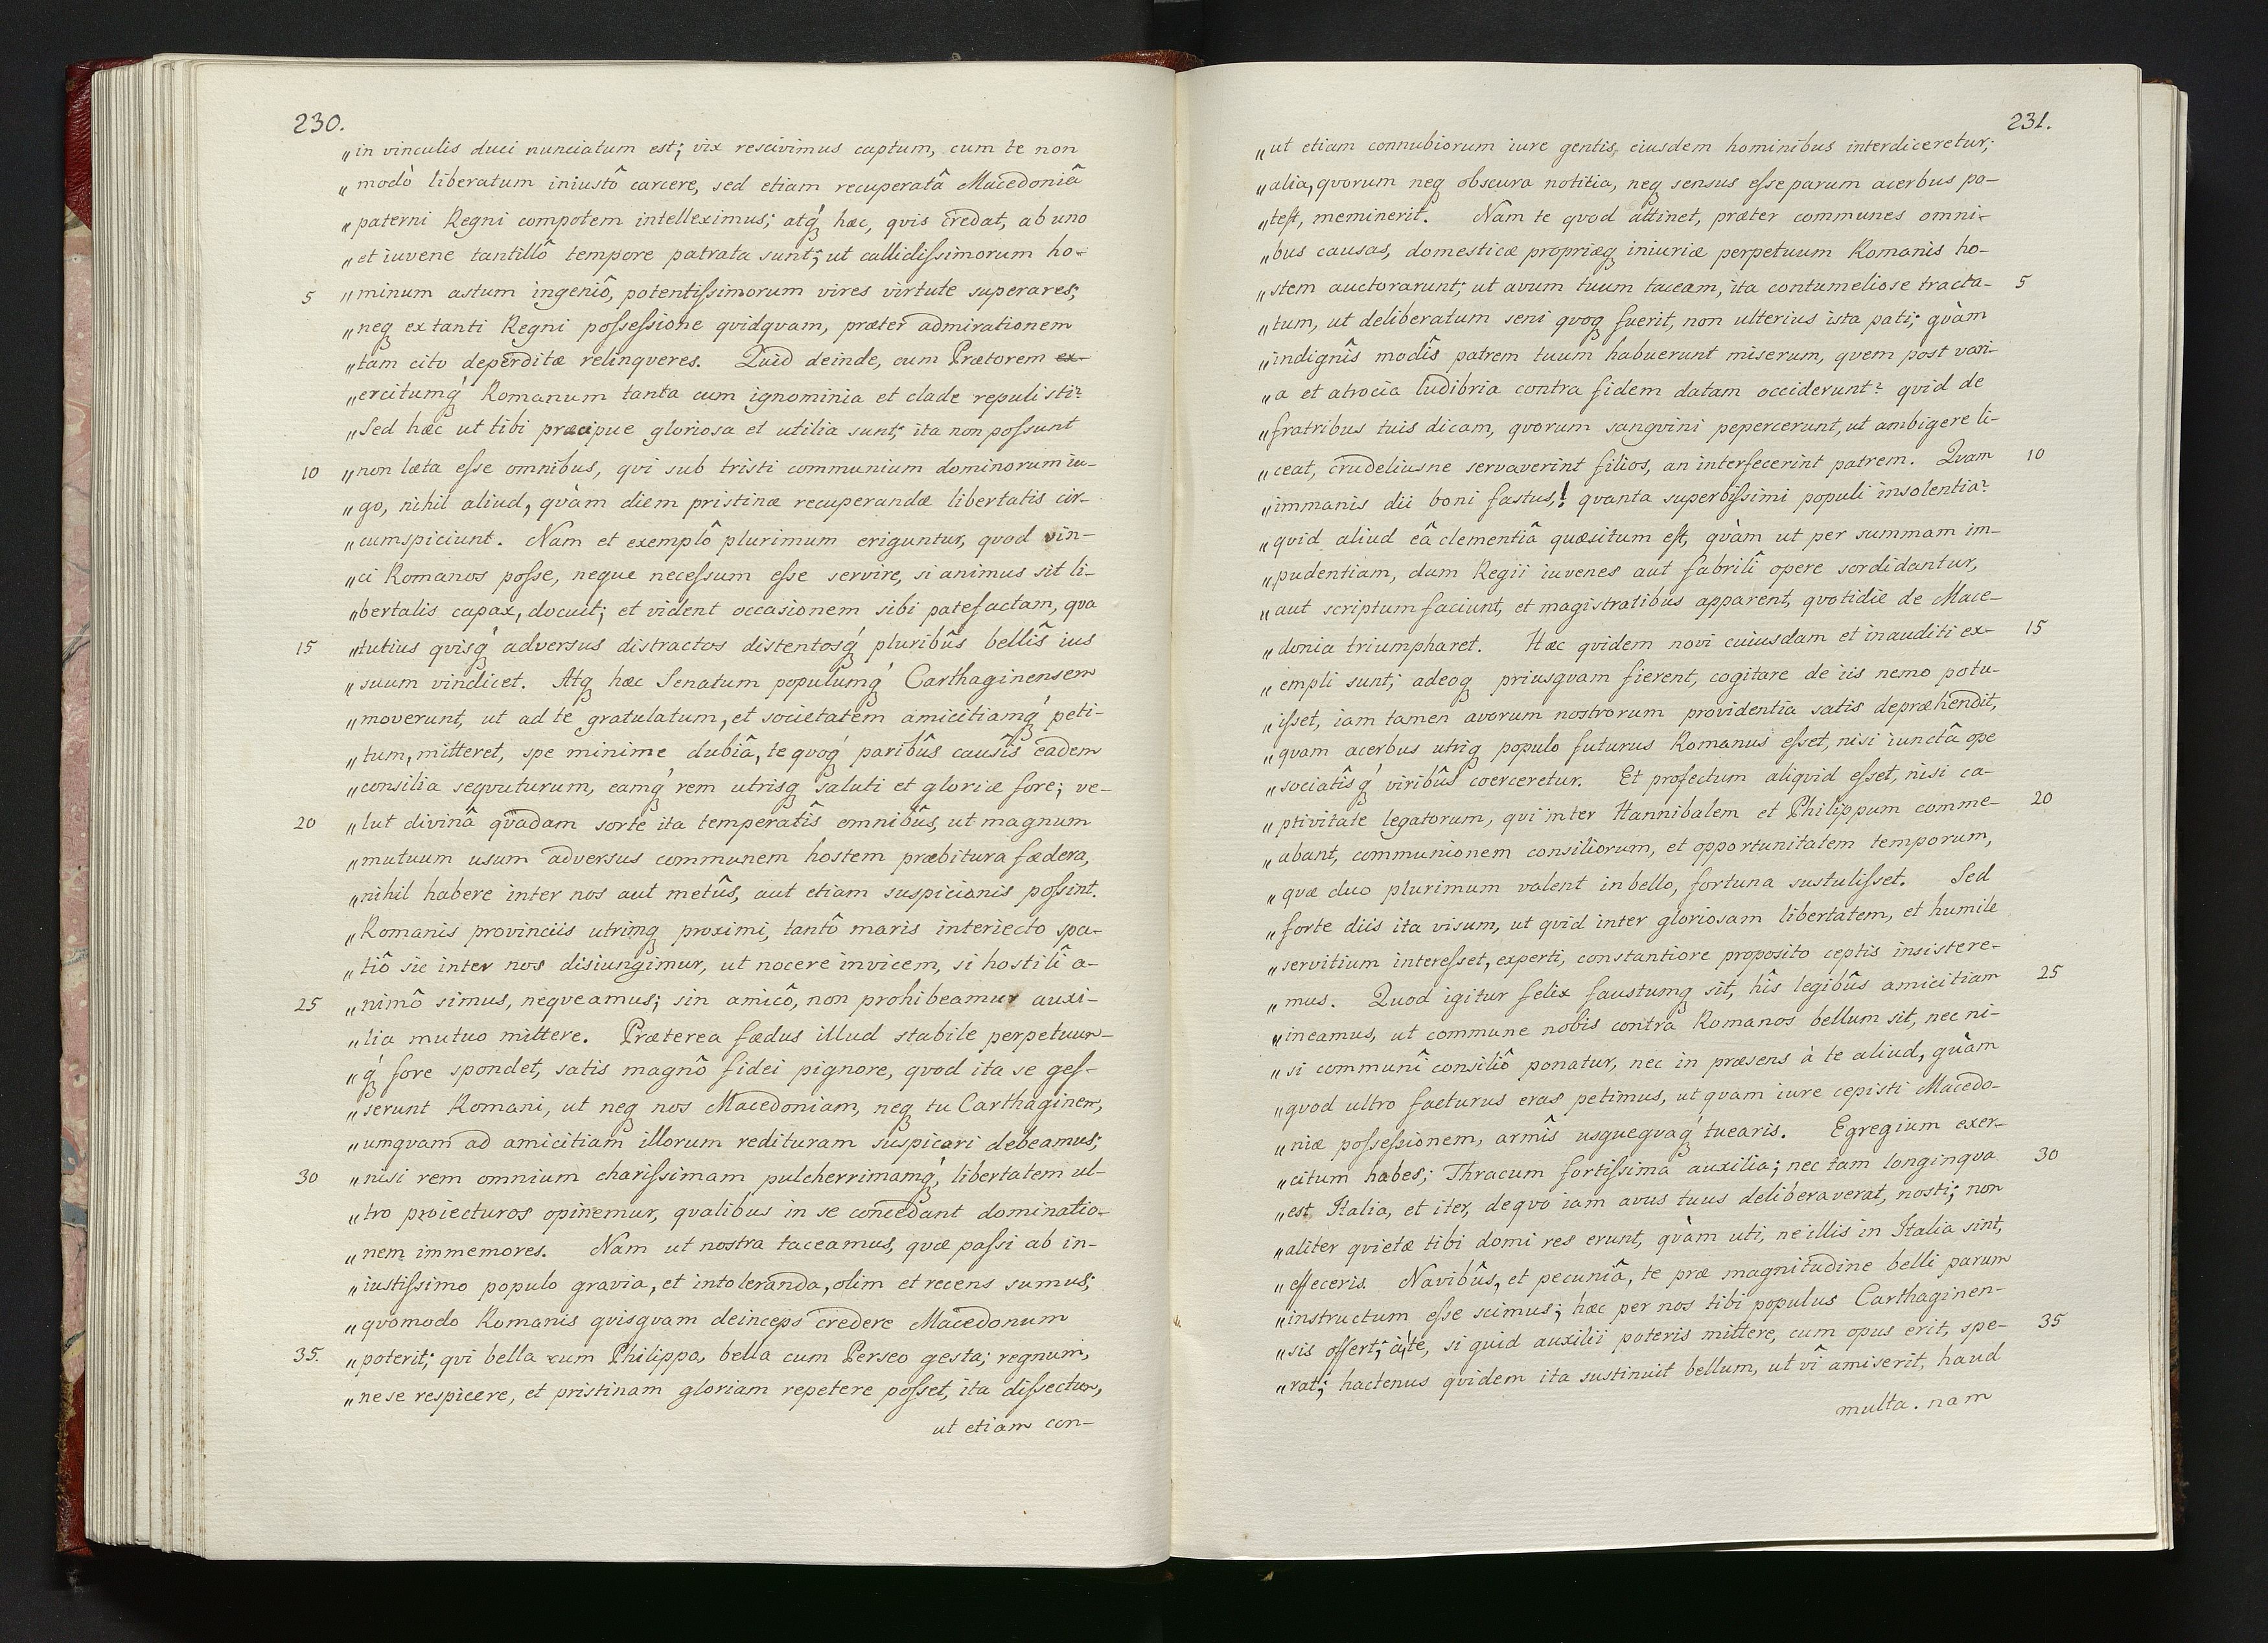 230.
„in vinculis duci nunciatum est; vix rescivimus captum, cum te non
„modò liberatum iniustô carcere, sed etiam recuperatâ Macedoniâ
„paterni Regni compotem intelleximus; atq́ hæc, qvis credat, ab uno
„et iuvene tantillô tempore patrata sunt; ut callidiſsimorum ho-
5 „minum astum ingeniô, potentiſsimorum vires virtute superares;
„neq ex tanti Regni poſseſsione qvidqvam, præter admirationem
„tam cito deperditæ relinqveres. Quid deinde, cum Prætorem ex-
„ercitumq́ Romanum tanta cum ignominia et clade repulisti?
„Sed hæc ut tibi præcipue gloriosa et utilia sunt; ita non poſsunt
10 „non læta eſse omnibus, qvi sub tristi communium dominorum iu-
„go, nihil aliud, qvàm diem pristinæ recuperandæ libertatis cir-
„cumspiciunt. Nam et exemplô plurimum eriguntur, quod vin-
„ci Romanos poſse, neque neceſsum eſse servire, si animus sit li-
„bertalis capax, docuit; et vident occasionem sibi patefactam, qva
15 „tutius qvisq́ adversus distractos distentosq́ pluribûs bellîs ius
„suum vindicet. Atq hæc Senatum populumq́ Carthaginensem
„moverunt, ut ad te gratulatum, et societatem amicitiamq́ peti-
„tum, mitteret, spe minime dubiâ, te qvoq́ paribûs causîs eadem
„consilia seqvuturum, eamq́ rem utrisq saluti et gloriæ fore; ve-
20 „lut divinâ qvadam sorte ita temperatîs omnibûs, ut magnum
„mutuum usum adversus communem hostem præbitura fædera,
„nihil habere inter nos aut metûs, aut etiam suspicionis poſsint.
„Romanis provinciis utrimq proximi, tantô maris interiecto spa-
„tiô sic inter nos disiungimur, ut nocere invicem, si hostilî a-
25 „nimô simus, neqveamus; sin amicô, non prohibeamur auxi-
„lia mutuo mittere. Præterea fædus illud stabile perpetuum-
„q́ fore spondet, satis magnô fidei pignore, qvod ita se geſ-
„serunt Romani, ut neq nos Macedoniam, neq tu Carthaginem,
„umqvam ad amicitiam illorum redituram suspicari debeamus;
30 „nisi rem omnium chariſsimam pulcherrimamq́, libertatem ul-
„tro proiecturos opinemur, qvalibus in se concedant dominatio-
„nem immemores. Nam ut nostra taceamus, qvæ paſsi ab in-
„iustiſsimo populo gravia, et intoleranda, olim et recens sumus;
„qvomodo Romanis qvisqvam deinceps credere Macedonum
35. „poterit; qvi bella cum Philippo, bella cum Perseo gesta; regnum,
„ne se respicere, et pristinam gloriam repetere poſset, ita diſsectum,
ut etiam con-
231.
„ut etiam connubiorum iure gentis eiusdem hominibus interdiceretur;
„alia, qvorum neq obscura notitia, neq sensus eſse parum acerbus po-
„test, meminerit. Nam te qvod attinet, præter communes omni-
„bus causas, domesticæ propriæq iniuriæ perpetuum Romanis ho-
„stem auctorarunt; ut avum tuum taceam, ita contumeliose tracta- 5
„tum, ut deliberatum seni qvoq fuerit, non ulterius ista pati; qvàm
„indignîs modîs patrem tuum habuerunt miserum, qvem post vari-
„a et atrocia ludibria contra fidem datam occiderunt? qvid de
„fratribus tuis dicam, qvorum sangvini pepercerunt, ut ambigere li-
„ceat, crudeliusne servaverint filios, an interfecerint patrem. Qvam 10
„immanis dii boni fastus,! qvanta superbiſsimi populi insolentia?
„qvid aliud eâ clementiâ quæsitum est, qvàm ut per summam im-
„pudentiam, dum Regii iuvenes aut fabrilî opere sordidantur,
„aut scriptum faciunt, et magistratibus apparent, qvotidie de Mace-
„donia triumpharet. Hæc qvidem novi cuiusdam et inauditi ex- 15
„empli sunt; adeoq priusqvam fierent, cogitare de iis nemo potu-
„iſset, iam tamen avorum nostrorum providentia satis depræhendit,
„qvam acerbus utriq populo futurus Romanus eſset, nisi iunctâ ope
„sociatîsq́ viribûs coerceretur. Et profectum aliqvid eſset, nisi ca-
„ptivitate legatorum, qvi inter Hannibalem et Philippum comme- 20
„abant, communionem consiliorum, et opportunitatem temporum,
„qvæ duo plurimum valent in bello, fortuna sustuliſset. Sed
„forte diis ita visum, ut qvid inter gloriosam libertatem, et humile
„servitium intereſset, experti, constantiore proposito ceptis insistere-
„mus. Quod igitur felix faustumq sit, hîs legibûs amicitiam 25
„ineamus, ut commune nobis contra Romanos bellum sit, nec ni-
„si communî consiliô ponatur, nec in præsens à te aliud, qvàm
„qvod ultro facturus eras petimus, ut qvam iure cepisti Macedo-
„niæ poſseſsionem, armîs usqueqvaq́ tuearis. Egregium exer-
„citum habes; Thracum fortiſsima auxilia; nec tam longinqva 30
„est Italia, et iter, de qvo iam avus tuus deliberaverat, nosti; non
„aliter qvietæ tibi domi res erunt, qvàm uti, ne illis in Italia sint,
„effeceris. Navibûs, et pecuniâ, te præ magnitudine belli parum
„instructum eſse scimus; hæc per nos tibi populus Carthaginen-
„sis offert; à te, si quid auxilii poteris mittere, cum opus erit, spe- 35
„rat; hactenus qvidem ita sustinuit bellum, ut vî amiserit, haud
multa. nam